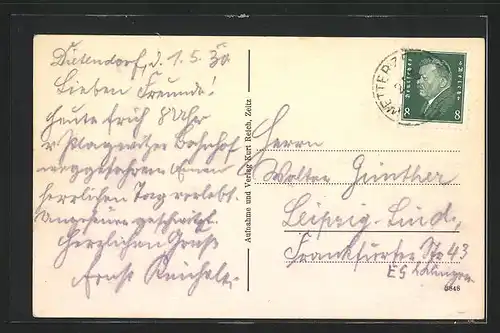 Dietendorf, d. 1.5.30
Lieben Freunde!
Heute früh 8 Uhr
v. Plagwitzer Bahnhof
weggefahren einen
herrlichen Tag verlebt.
Herzlichen Gruß
Ernst
Aufnahme und Verlag Kurt Reich, Zeitz
Deutsches Reich
8 8
WETTERZ
Herrn
Walter Günther
Leipzig-Lind.
Frankfurter Str 43
3848